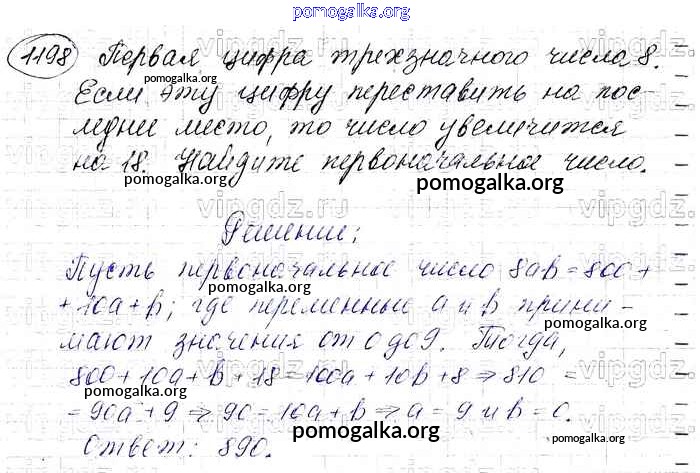 pomogalka.org
1198 Первая цифра трехзначного числа 8.
pomogalka.org
Если эту цифру переставить на пос-
леднее место, то число увеличится
на 18. Найдите первоначальное число.
pomogalka.org
pomogalka.org
Решение:
Пусть первоначальное число 8ab = 800 +
pomogalka.org
+ 10a + b; где переменные a и b прини-
мают значения от 0 до 9. Тогда,
pomogalka.org
800 + 10a + b + 18 = 100a + 10b + 8 ⇒ 810 =
pomogalka.org
= 90a + 9 ⇒ 90 = 10a + b ⇒ a = 9 и b = 0.
pomogalka.org
Ответ: 890.
pomogalka.org